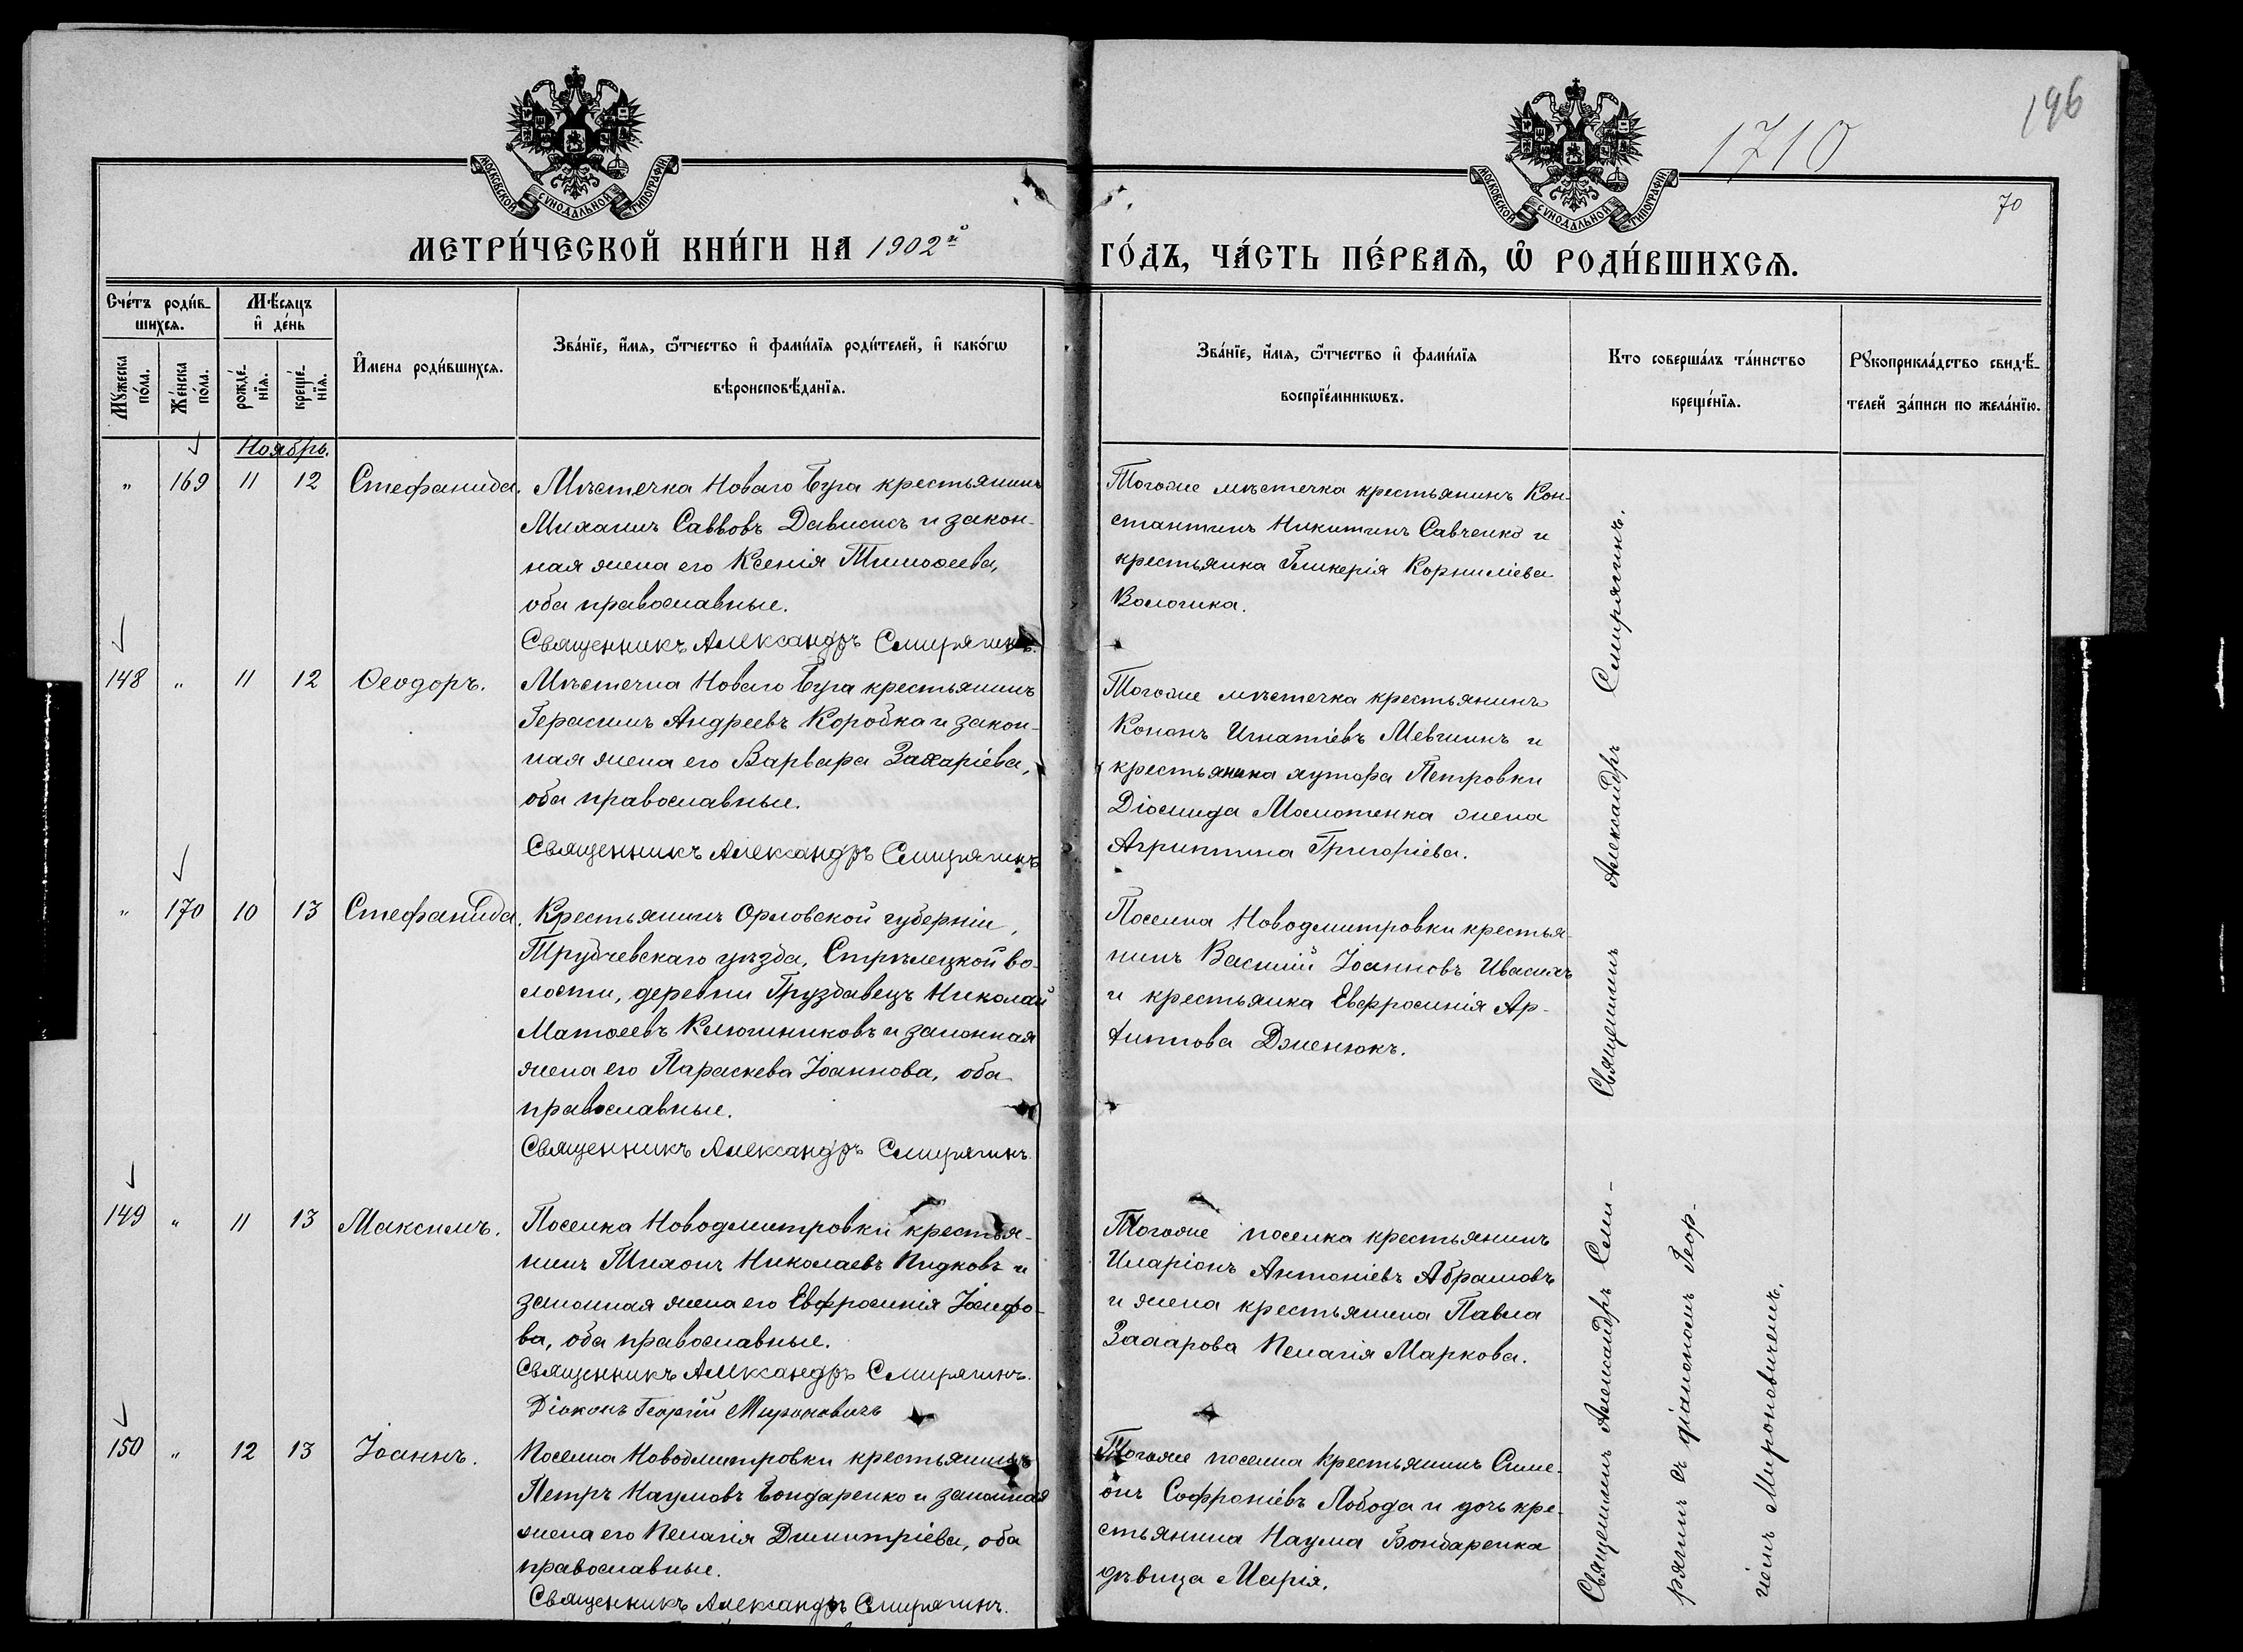 196
1710
70
МОСКОВСКОЙ СУНОДАЛЬНОЙ ТИПОГРАФІИ
МОСКОВСКОЙ СУНОДАЛЬНОЙ ТИПОГРАФІИ
МЕТРИ́ЧЕСКОЙ КНИ́ГИ НА 1902й
ГО́ДЪ, ЧА́СТЬ ПЕ́РВАѦ, Ѡ҆ РОДИ́ВШИХСѦ.
Сче́тъ роди́в-
шихсѧ.
Мѣ́сѧцъ
и҆ де́нь
Мꙋ́жеска
по́ла.
Же́нска
по́ла.
рожде́-
нїѧ.
креще́-
нїѧ.
И҆мена роди́вшихсѧ.
Зва́нїе, и҆́мѧ, ѻ҆́тчество и҆ фами́лїѧ роди́телей, и҆ како́гѡ
вѣроисповѣ́данїѧ.
Зва́нїе, и҆́мѧ, ѻ҆́тчество и҆ фами́лїѧ
воспрїе́мникѡвъ.
Кто соверша́лъ та́инство
креще́нїѧ.
Рꙋкоприкла́дство свидѣ́-
телей за́писи по жела́нїю.
Ноябрь.
" 169 11 12 Стефанида.
Мѣстечка Новаго Буга крестьянинъ
Михаилъ Саввовъ Дависисъ и закон-
ная жена его Ксенія Тимоѳеева,
оба православные.
Священникъ Александръ Смирягинъ.
Тогоже мѣстечка крестьянинъ Кон-
стантинъ Никитинъ Савченко и
крестьянка Гликерія Корниліева
148 " 11 12 Ѳеодоръ.
Мѣстечка Новаго Буга крестьянинъ
Герасимъ Андреевъ Коробка и закон-
ная жена его Варвара Захаріева,
оба православные.
Священникъ Александръ Смирягинъ
Тогоже мѣстечка крестьянинъ
Кононъ Игнатіевъ и
крестьянина хутора Петровки
Діомида жена
Агриппина Григоріева.
" 170 10 13 Стефанида.
Крестьянинъ Орловской губерніи,
Трубчевскаго уѣзда, Стрѣлецкой во-
лости, деревни Груздавецъ Николай
Матѳеевъ Ключниковъ и законная
жена его Параскева Іоаннова, оба
православные.
Священникъ Александръ Смирягинъ.
Поселка Новодмитровки крестья-
нинъ Василій Іоанновъ Ивасихъ
и крестьянка Евфросинія
Дженюкъ.
149 " 11 13 Максимъ.
Поселка Новодмитровки крестья-
нинъ Тихонъ Николаевъ Пидковъ и
законная жена его Евфросинія Іосифо-
ва, оба православные.
Священникъ Александръ Смирягинъ.
Діаконъ Георгій Мироновичъ
Тогоже поселка крестьянинъ
Иларіонъ Антоніевъ Абрамовъ
и жена крестьянина Павла
Захарова Пелагія Маркова.
150 " 12 13 Іоаннъ.
Поселка Новодмитровки крестьянинъ
Петръ Наумовъ Бондаренко и законная
жена его Пелагія Димитріева, оба
православные.
Священникъ Александръ Смирягинъ.
Тогоже поселка крестьянинъ Симе-
онъ Софроніевъ Лобода и дочь кре-
стьянина Наума Бондаренка
дѣвица Марія.
Священникъ Александръ Смирягинъ.
Священникъ Александръ Сми-
рягинъ съ діакономъ Геор-
гіемъ Мироновичемъ.